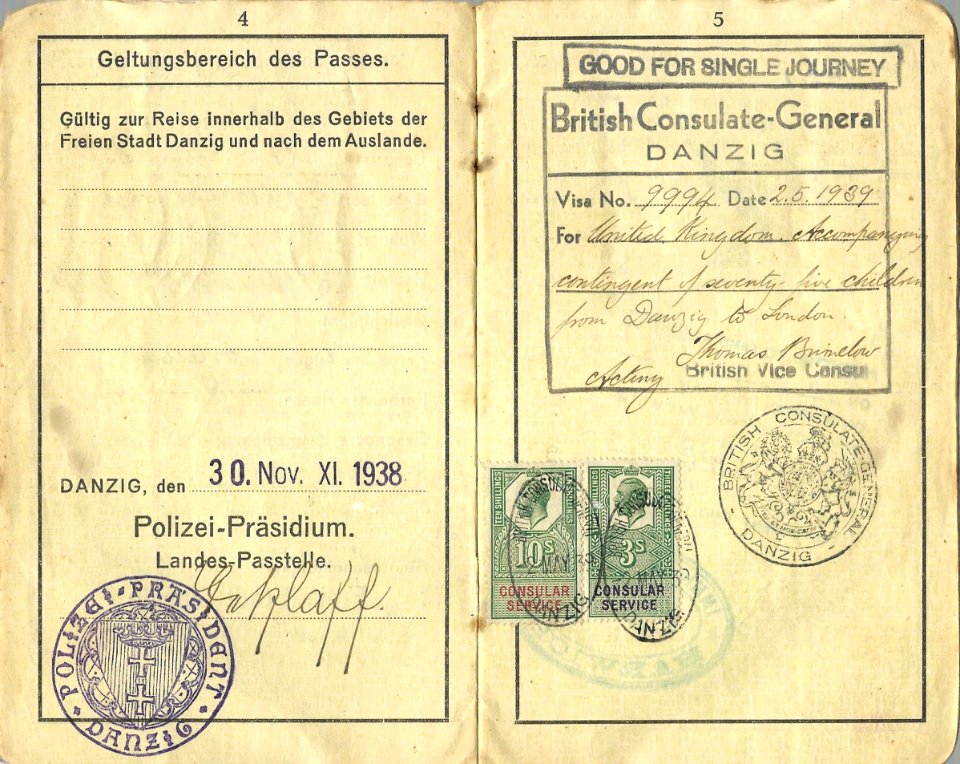 4
Geltungsbereich des Passes.
Gültig zur Reise innerhalb des Gebiets der
Freien Stadt Danzig und nach dem Auslande.
DANZIG, den 30. Nov. XI. 1938
Polizei-Präsidium.
Landes-Passtelle.
POLIZEI-PRÄSIDENT
DANZIG
5
GOOD FOR SINGLE JOURNEY
British Consulate-General
DANZIG
Visa No. 9994 Date 2.5.1939
For United Kingdom. Accompanying
contingent of seventy-five children
from Danzig to London.
Thomas Brimelow
Acting British Vice Consul
BRITISH CONSULATE-GENERAL
- DANZIG -
TEN SHILLINGS
10S
CONSULAR
SERVICE
3S
CONSULAR
SERVICE
MAY 39
DANZIG